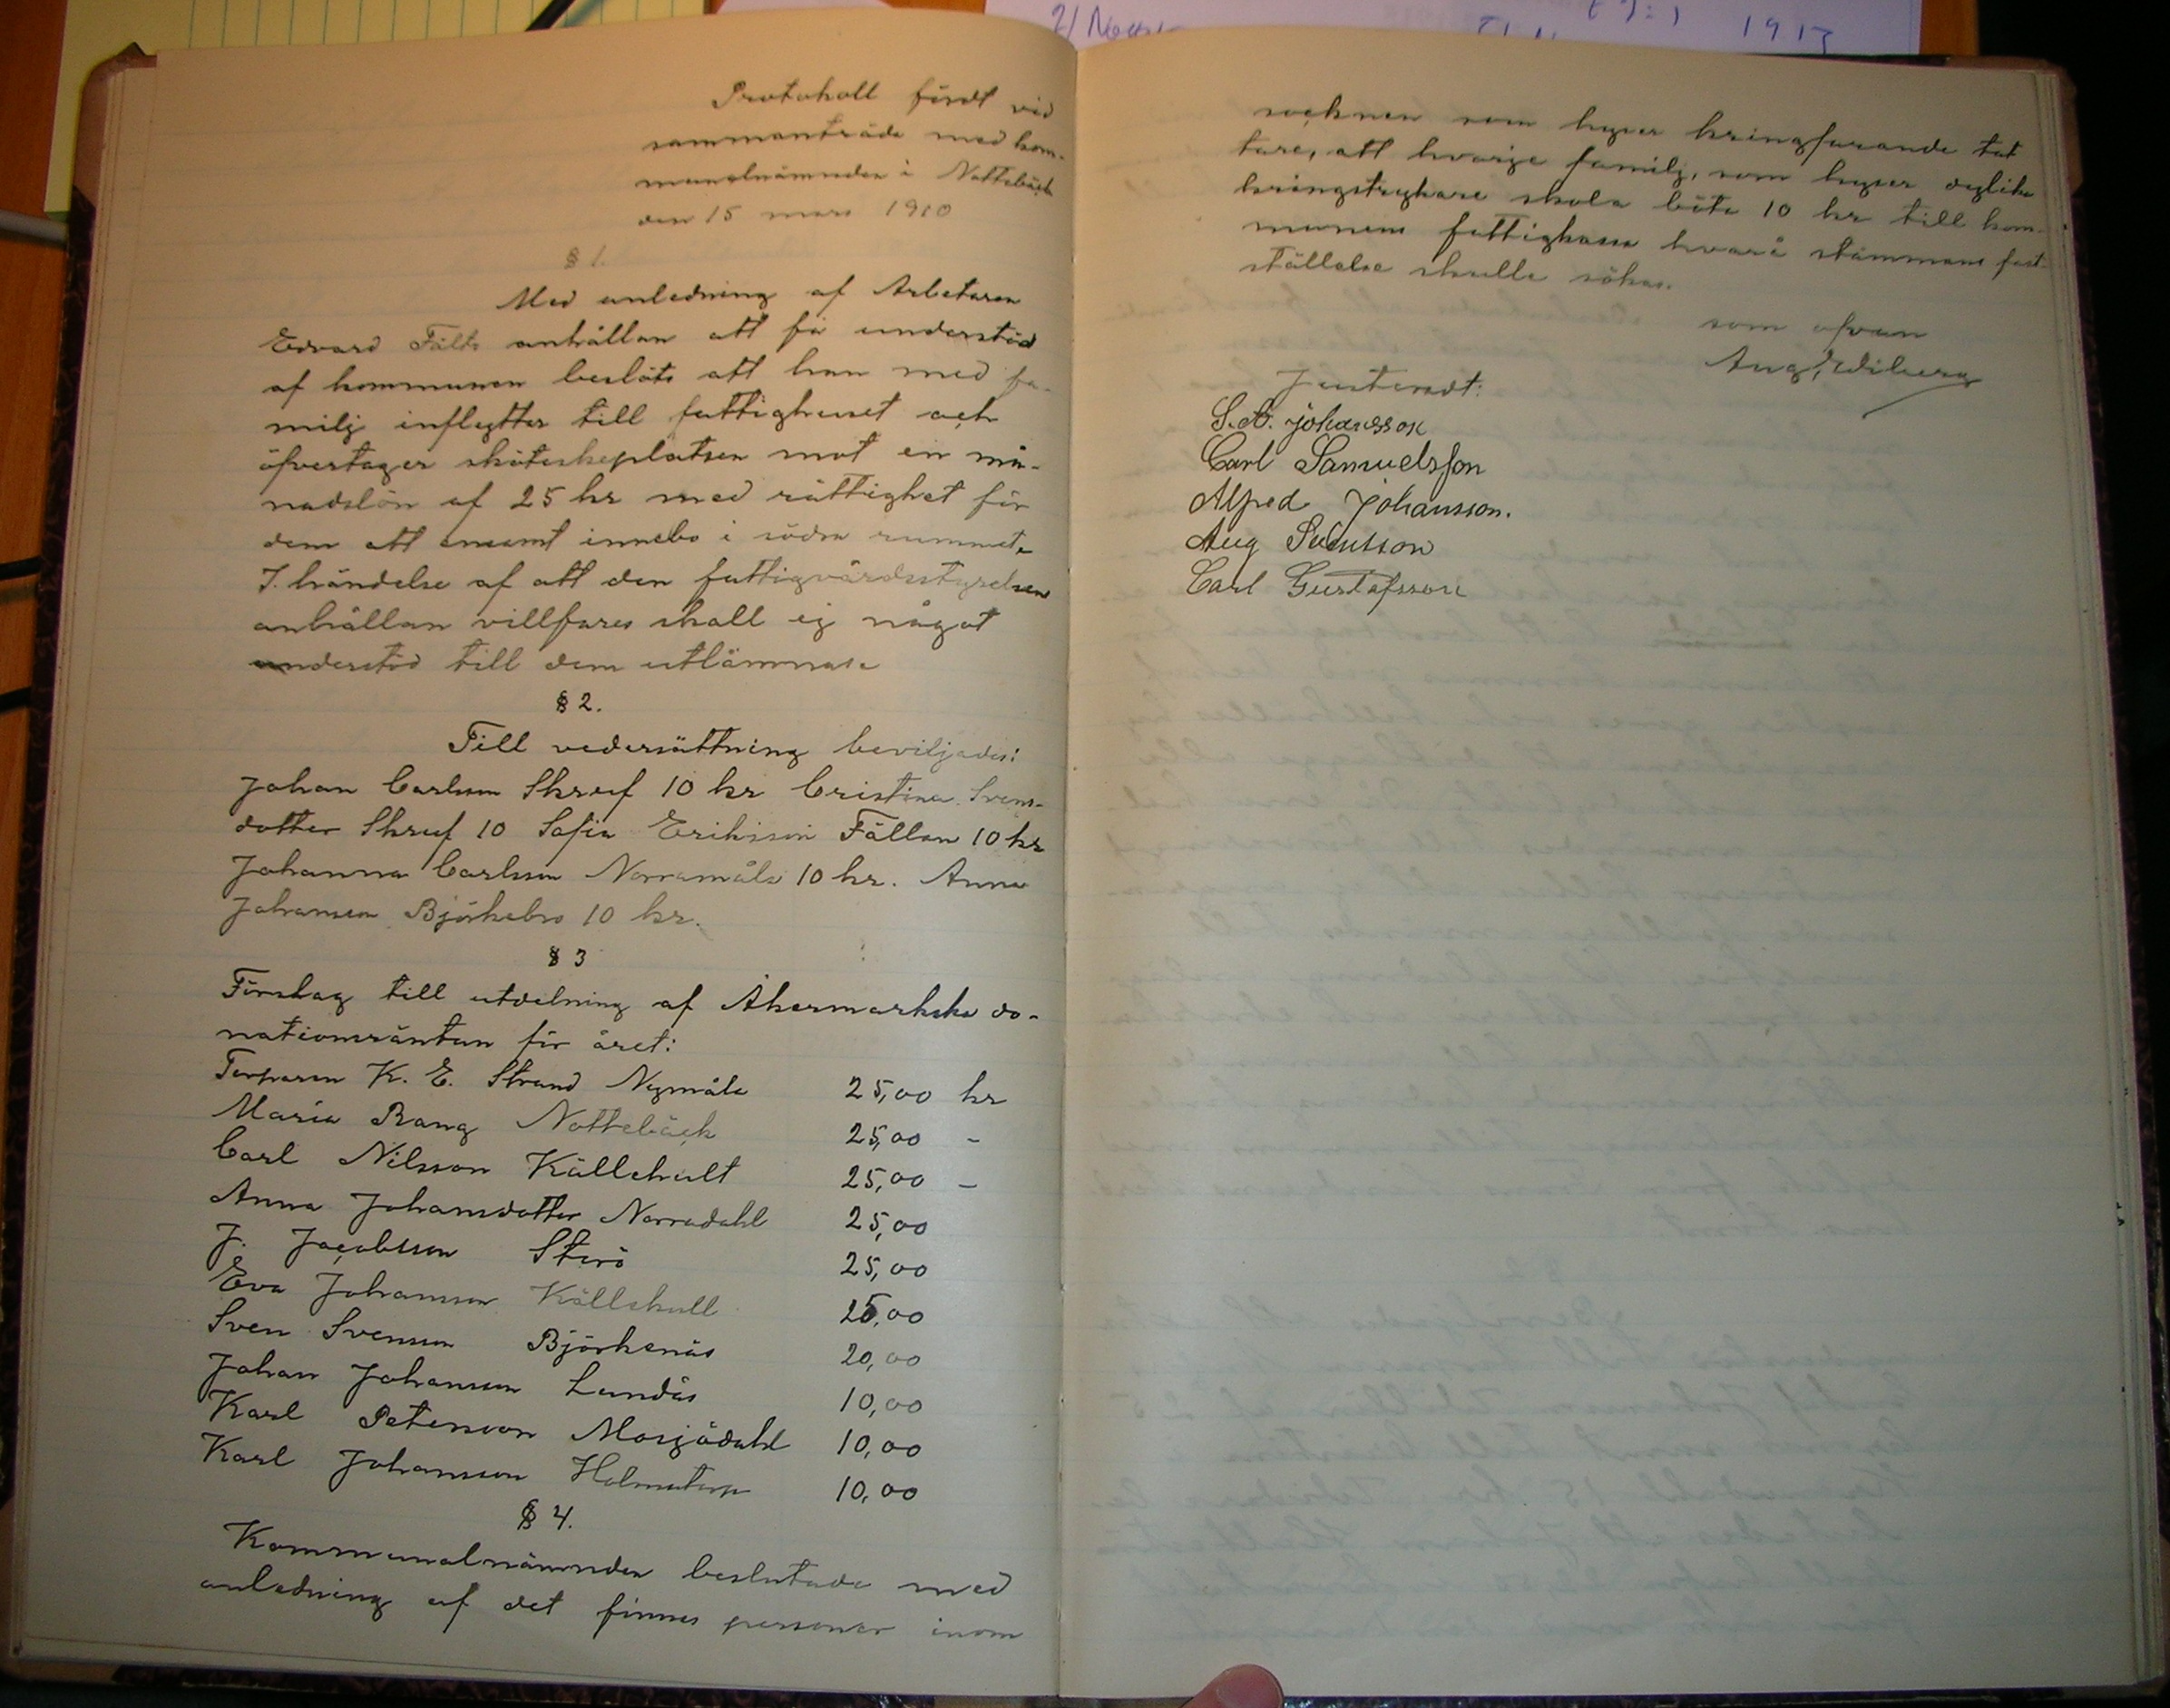 2/
1913
Protokoll fördt vid
sammanträde med kom-
munalnämnden i Nottebäck
den 15 mars 1910
§ 1.
Med anledning af Arbetaren
Edvard Fälts anhållan att få understöd
af kommunen beslöts att han med fa-
milj inflytter till fattighuset och
öfvertager sköterskeplatsen mot en må-
nadslön af 25 kr med rättighet för
dem att ensamt innebo i södra rummet.
I händelse af att den fattigvårdsstyrelsen
anhållan villfares skall ej något
understöd till dem utlämnas.
§ 2.
Till vedersättning beviljades:
Johan Carlsson Skruf 10 kr Cristina Svens-
dotter Skruf 10 Sofia Eriksson Fällan 10 kr
Johanna Carlsson Norramåla 10 kr. Anna
Johanson Björkebro 10 kr.
§ 3
Förslag till utdelning af Åkermarkska do-
nationsräntan för året:
Torparen K. E. Strand Nymåla 25,00 kr
Maria Rang Nottebäck 25,00 -
Carl Nilsson Källehult 25,00 -
Anna Johansdotter Norradahl 25,00
J. Jacobsson Sterö 25,00
Eva Johansson Källehull 25,00
Sven Svensson Björkenäs 20,00
Johan Johansson Lundås 10,00
Karl Peterson Mosjödahl 10,00
Karl Johansson Holmatorp 10,00
§ 4.
Kommunalnämnden beslutade med
anledning af det finnes personer inom
socknen som hyser kringfarande tat
tare, att hvarje familj, som hyser dylika
kringstrykare skola böta 10 kr till kom-
munens fattigkassa hvarå stämmans fast-
ställelse skulle sökas.
som ofvan
Aug. Wiberg
Justeradt:
S. A. Johansson
Carl Samuelsson
Alfred Johansson.
Aug Svensson
Carl Gustafsson